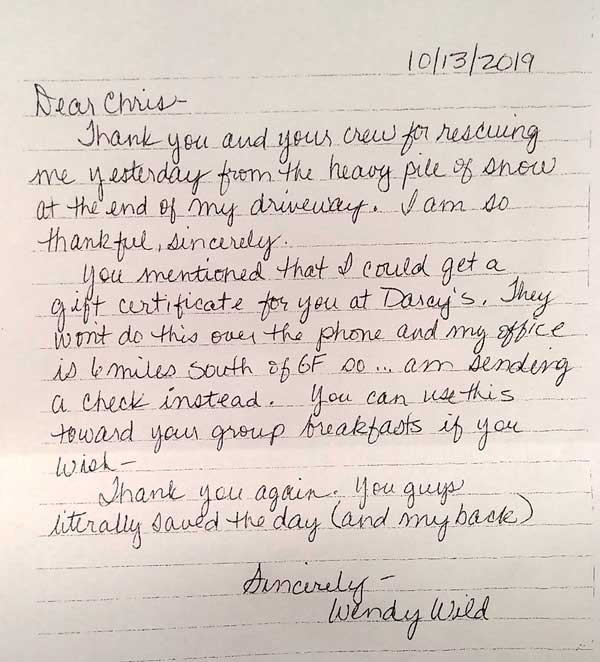 10/13/2019
Dear Chris-
Thank you and your crew for rescuing
me yesterday from the heavy pile of snow
at the end of my driveway. I am so
thankful, sincerely.
You mentioned that I could get a
gift certificate for you at Darcy's. They
wont do this over the phone and my office
is 6 miles south of GF so... am sending
a check instead. You can use this
toward your group breakfasts if you
wish-
Thank you again. You guys
literally saved the day (and my back)
Sincerely-
Wendy Wild